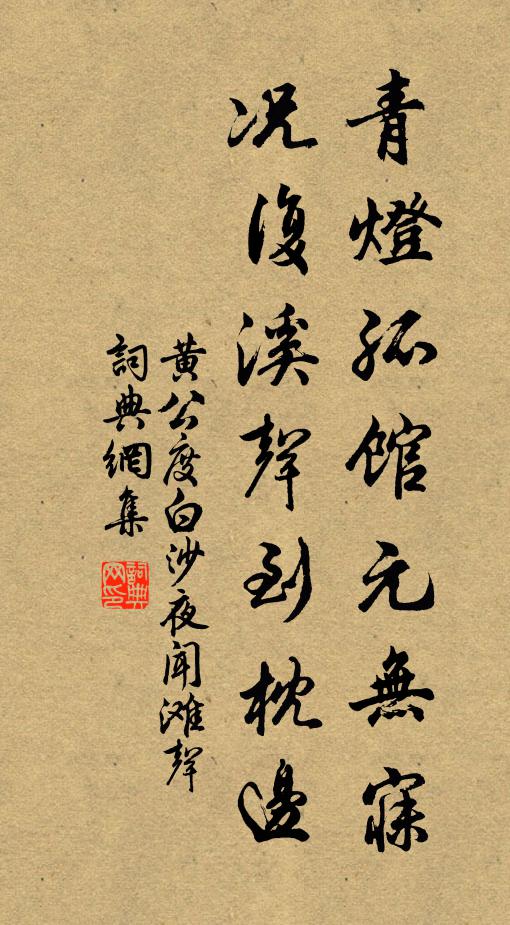 青燈孤館元無寐
况復溪聲到枕邊
黄公度白沙夜聞滩聲
詞典網集
詞典网印